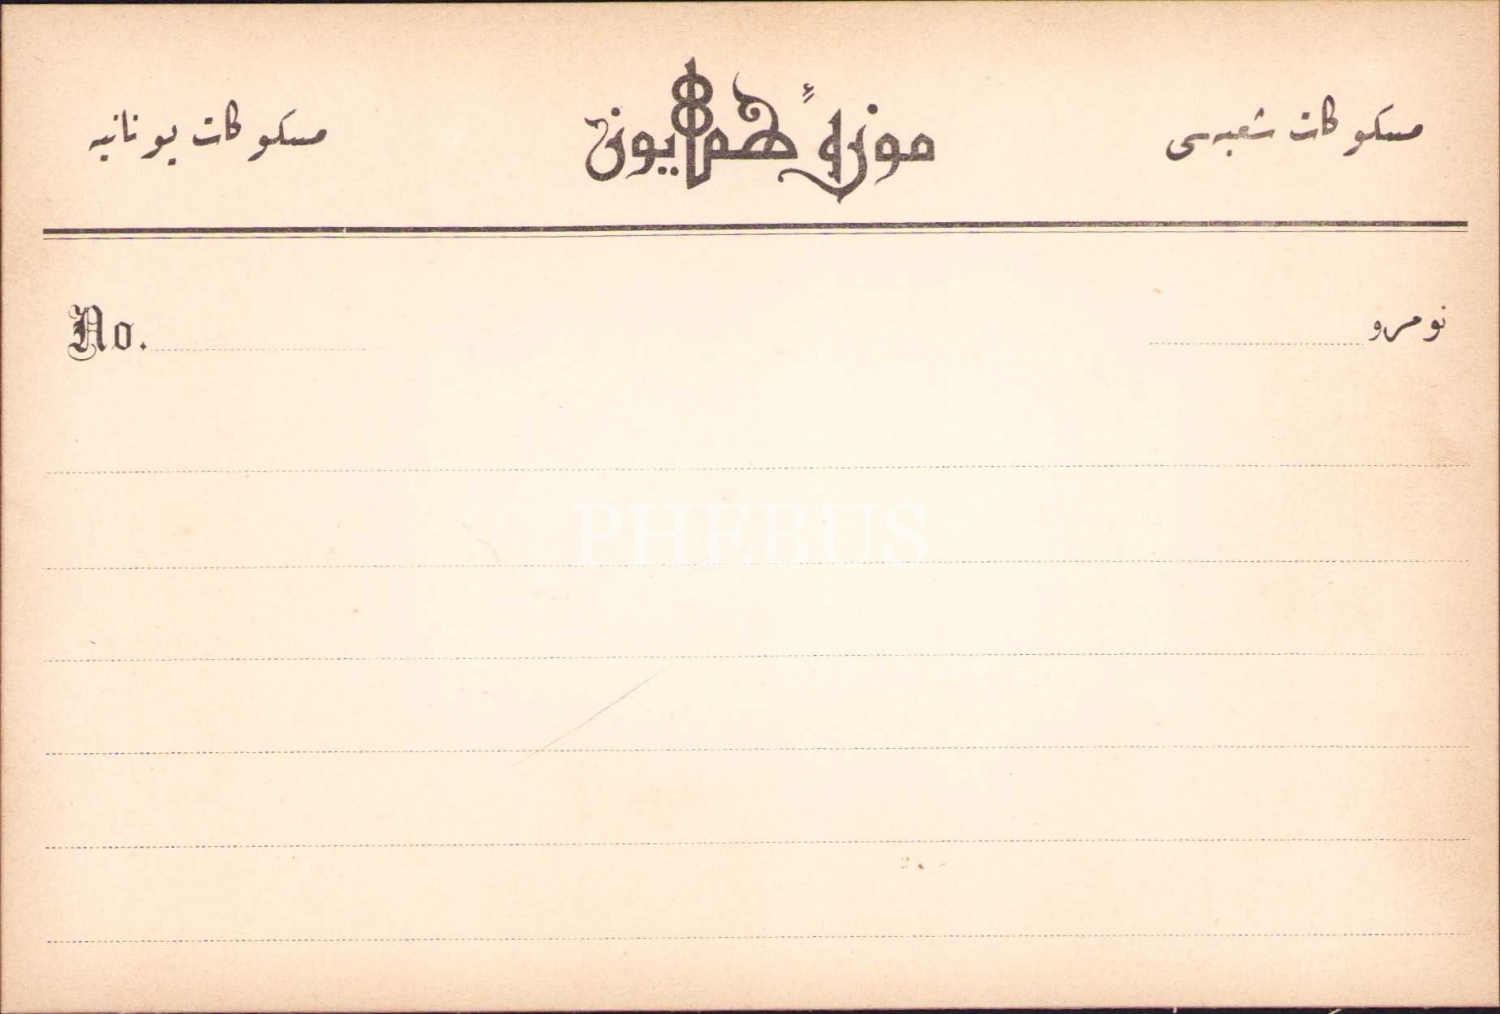 مسكوكات شعبه‌سى
موزهٔ همايون
مسكوكات يونانيه
نومرو
No.
PHEBUS